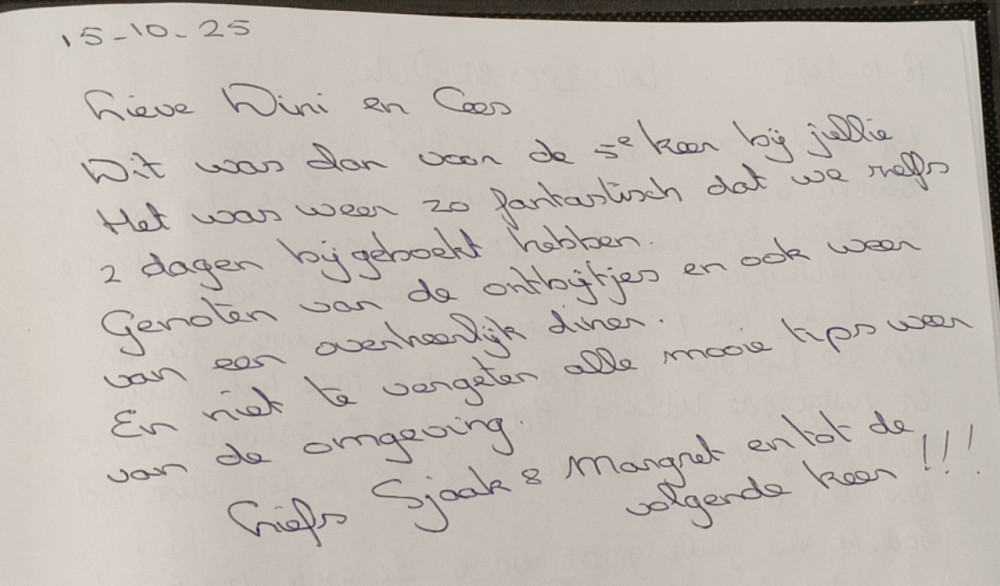 15-10-25
Lieve Wini en Cees
Dit was dan voor de 5e keer bij jullie
Het was weer zo fantastisch dat we zelfs
2 dagen bijgeboekt hebben.
Genoten van de ontbijtjes en ook weer
van een overheerlijk diner.
En niet te vergeten alle mooie tips weer
van de omgeving.
Liefs Sjaak & Margret en tot de
volgende keer !!!